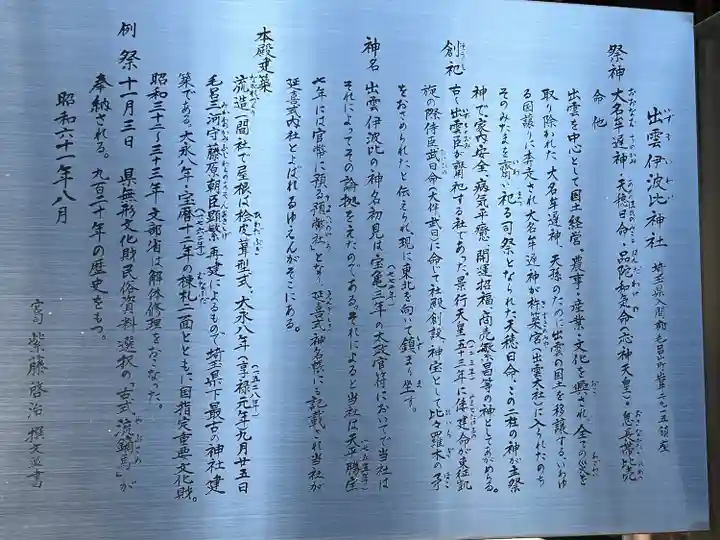 出雲伊波比神社 埼玉県入間郡毛呂山町
祭神 大名牟遅神・天穂日命・品陀和気命(応神天皇)・息長帯比売
命他
出雲を中心として国土経営、農事・産業・文化を興され全ての災を
取り除かれた大名牟遅神、天孫のために出雲の国土を移譲するいはゆ
る国譲に奉走され大名牟遅神が杵築宮(出雲大社)に入られたのち
そのみたまを齋い祀る司祭となられた天穂日命、この二柱の神が主祭
神で、家内安全、病気平癒、開運招福、商売繁昌等の神としてあがめる。
創祀 古く出雲臣が齋祀する社であった。景行天皇五十三年に倭建命が東征凱
旋の際侍臣武日命(大伴武日)に命じて社殿創設、神宝として比々羅木の矛
をおさめられたと伝えられ、現に東北を向いて鎮まり坐す。
神名 出雲伊波比の神名初見は宝亀三年の太政官符においてで当社は
それによってその論拠をえたのである。それによると当社は天平勝宝
七年には官幣に預る預幣社となり延喜式神名帳に記載され当社が
延喜式内社とよばれるゆえんがそこにある。
本殿建築 流造(一間社)で屋根は桧皮葺型式、大永八年(享禄元年)九月廿五日
毛呂三河守藤原朝臣顕繁再建によるもので埼玉県下最古の神社建
築である。大永八年・宝暦十二年の棟札二面とともに国指定重要文化財。
昭和三十二〜三十三年文部省は解体修理をおこなった。
例祭 十一月三日 県無形文化財民俗資料選択の「古式流鏑馬」が
奉納される。九百二十年の歴史をもつ。
昭和六十一年八月
宮司 紫藤啓治 撰文並書